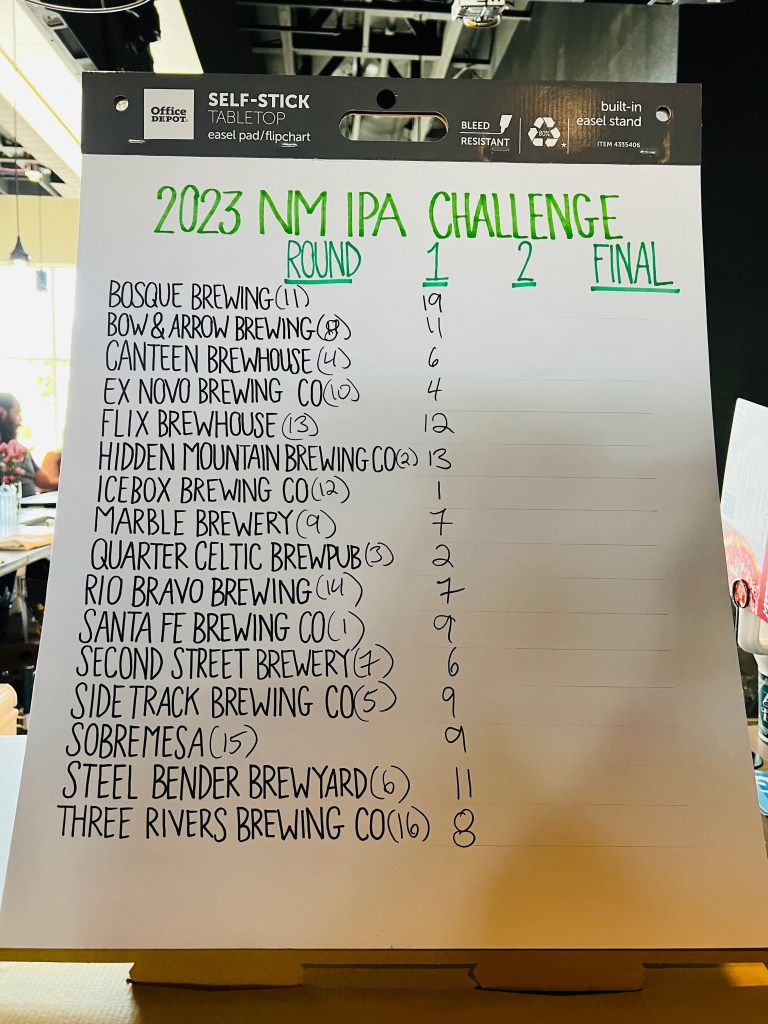 Office DEPOT
SELF-STICK
TABLETOP
easel pad/flipchart
BLEED
RESISTANT
80%
built-in
easel stand
ITEM 4335406
2023 NM IPA CHALLENGE
ROUND 1 2 FINAL
BOSQUE BREWING (11) 19
BOW & ARROW BREWING (8) 11
CANTEEN BREWHOUSE (4) 6
EX NOVO BREWING CO (10) 4
FLIX BREWHOUSE (13) 12
HIDDEN MOUNTAIN BREWING CO (2) 13
ICEBOX BREWING CO (12) 1
MARBLE BREWERY (9) 7
QUARTER CELTIC BREWPUB (3) 2
RIO BRAVO BREWING (14) 7
SANTA FE BREWING CO (1) 9
SECOND STREET BREWERY (7) 6
SIDETRACK BREWING CO (5) 9
SOBREMESA (15) 9
STEEL BENDER BREWYARD (6) 11
THREE RIVERS BREWING CO (16) 8